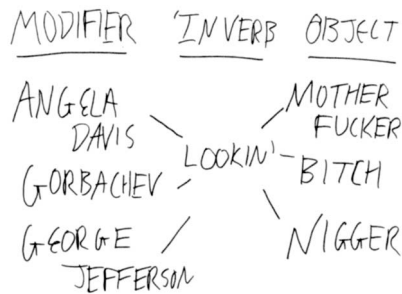 MODIFIER 'IN VERB OBJECT
ANGELA DAVIS
GORBACHEV
GEORGE JEFFERSON
LOOKIN'
MOTHER FUCKER
BITCH
NIGGER